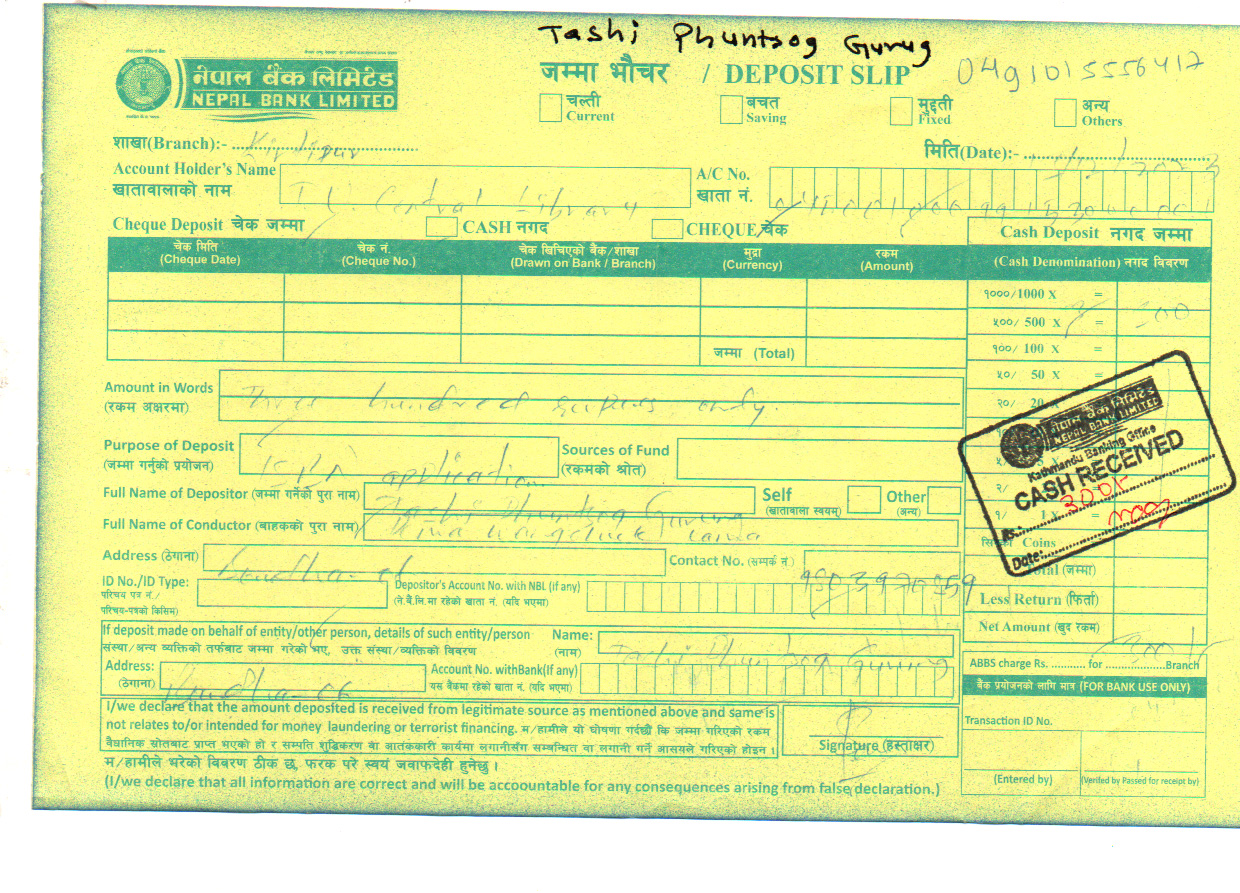 Tashi Phuntsog Gurug
नेपाल बैंक लिमिटेड
NEPAL BANK LIMITED
जम्मा भौचर / DEPOSIT SLIP
0491015556417
चल्ती Current
बचत Saving
मुद्दती Fixed
अन्य Others
शाखा(Branch):- Kirtipur
मिति(Date):-
Account Holder's Name
खातावालाको नाम
T.U. Central Library
A/C No.
खाता नं.
Cheque Deposit चेक जम्मा
CASH नगद
CHEQUE चेक
Cash Deposit नगद जम्मा
चेक मिति (Cheque Date)
चेक नं. (Cheque No.)
चेक खिचिएको बैंक/शाखा (Drawn on Bank / Branch)
मुद्रा (Currency)
रकम (Amount)
(Cash Denomination) नगद विवरण
१०००/1000 X =
५००/ 500 X =
१००/ 100 X =
५०/ 50 X =
२०/ 20
जम्मा (Total)
Amount in Words
(रकम अक्षरमा)
Three hundred rupees only.
Purpose of Deposit
(जम्मा गर्नुको प्रयोजन)
application
Sources of Fund
(रकमको श्रोत)
नेपाल बैंक लिमिटेड
NEPAL BANK LIMITED
Kathmandu Banking Office
CASH RECEIVED
Rs.: 300/-
Date:
२/
१/ 1 X =
Coins
Total (जम्मा)
Full Name of Depositor (जम्मा गर्नेको पुरा नाम)
Tashi Phuntsog Gurung
Self
(खातावाला स्वयम्)
Other
(अन्य)
Full Name of Conductor (बाहकको पुरा नाम)
Address (ठेगाना)
Boudha-06
Contact No. (सम्पर्क नं.)
ID No./ID Type:
परिचय पत्र नं./
परिचय-पत्रको किसिम)
Depositor's Account No. with NBL (if any)
(ने.बैं.लि.मा रहेको खाता नं. (यदि भएमा)
Less Return (फिर्ता)
Net Amount (खुद रकम)
If deposit made on behalf of entity/other person, details of such entity/person
संस्था/अन्य व्यक्तिको तर्फबाट जम्मा गरेको भए, उक्त संस्था/व्यक्तिको विवरण
Name:
(नाम)
Tashi Phuntsog Gurung
Address:
(ठेगाना)
Boudha-06
Account No. withBank(If any)
यस बैंकमा रहेको खाता नं. (यदि भएमा)
ABBS charge Rs. ........... for ....................Branch
बैंक प्रयोजनको लागि मात्र (FOR BANK USE ONLY)
Transaction ID No.
(Entered by)
(Verifed by Passed for receipt by)
I/we declare that the amount deposited is received from legitimate source as mentioned above and same is
not relates to/or intended for money laundering or terrorist financing. म/हामीले यो घोषणा गर्दछौं कि जम्मा गरिएको रकम
वैधानिक स्रोतबाट प्राप्त भएको हो र सम्पति शुद्धिकरण वा आतंककारी कार्यमा लगानीसँग सम्बन्धित वा लगानी गर्ने आसयले गरिएको होइन ।
Signature (हस्ताक्षर)
म/हामीले भरेको विवरण ठीक छ, फरक परे स्वयं जवाफदेही हुनेछु ।
(I/we declare that all information are correct and will be accoountable for any consequences arising from false declaration.)